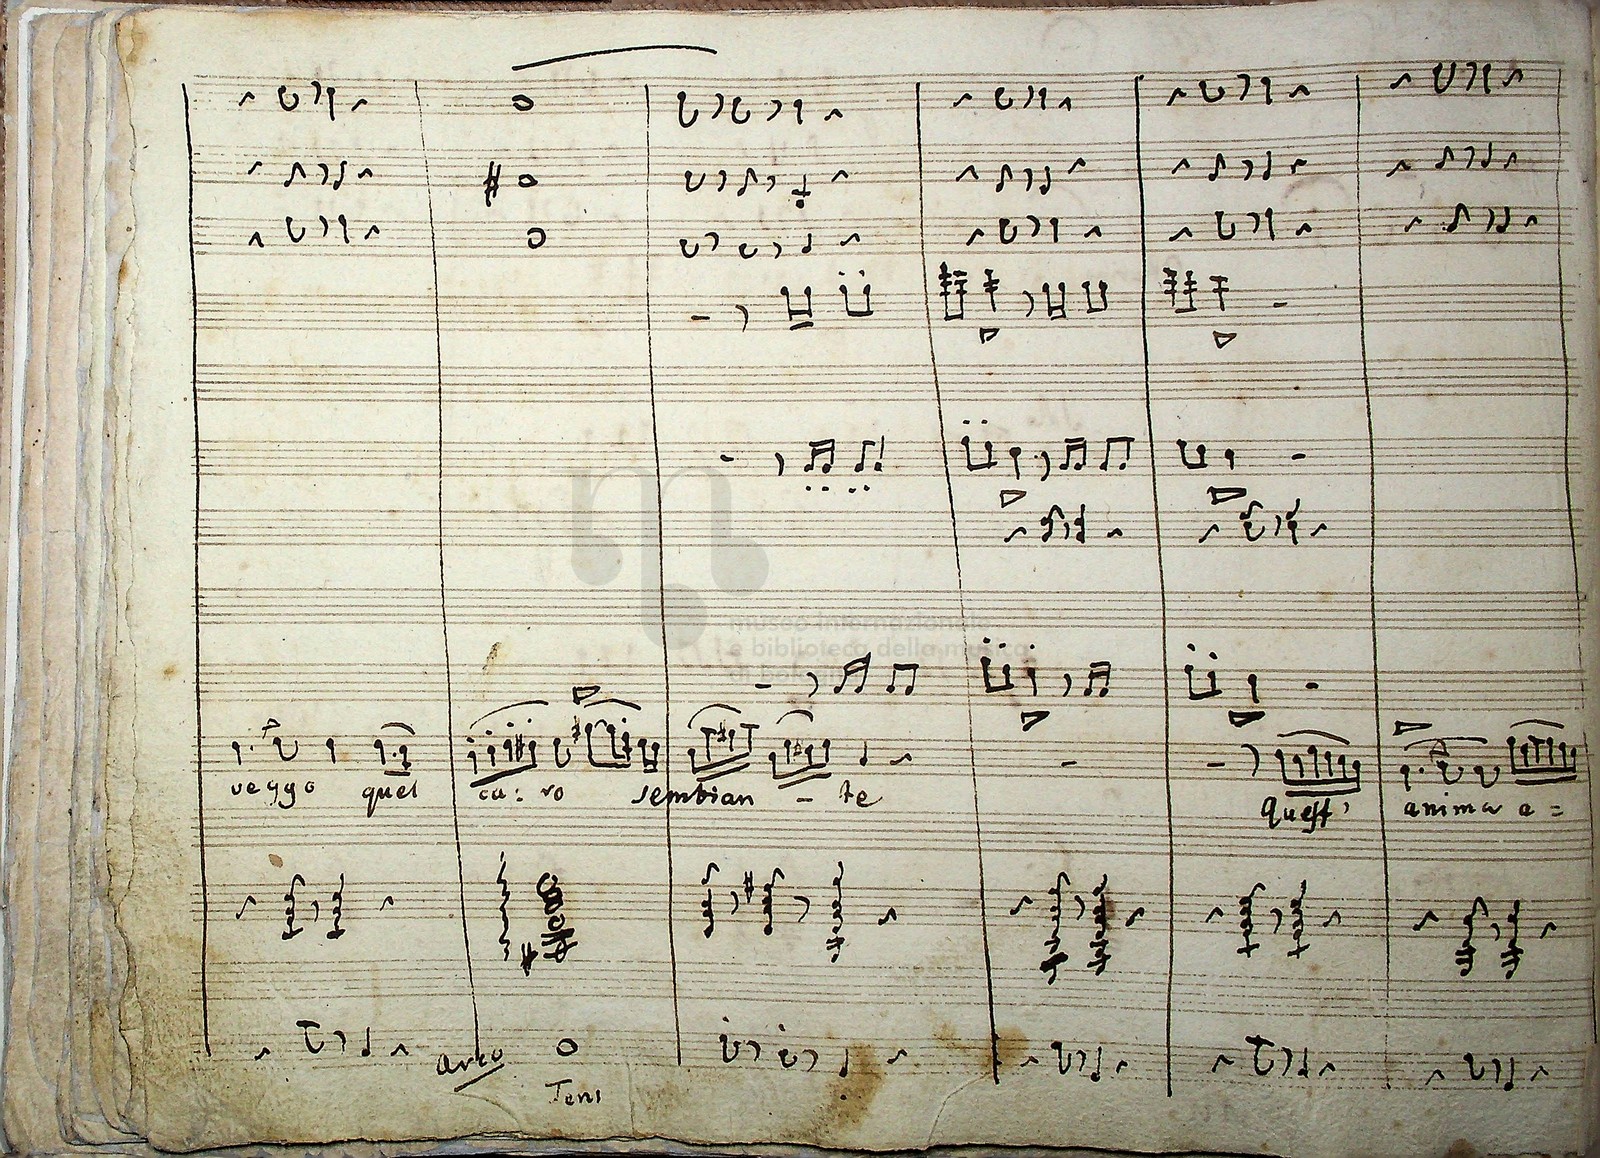 museo internazionale
e biblioteca della musica
di bologna
veggo quel ca: ro sembian - te Quest' anima a=
arco
Ten: